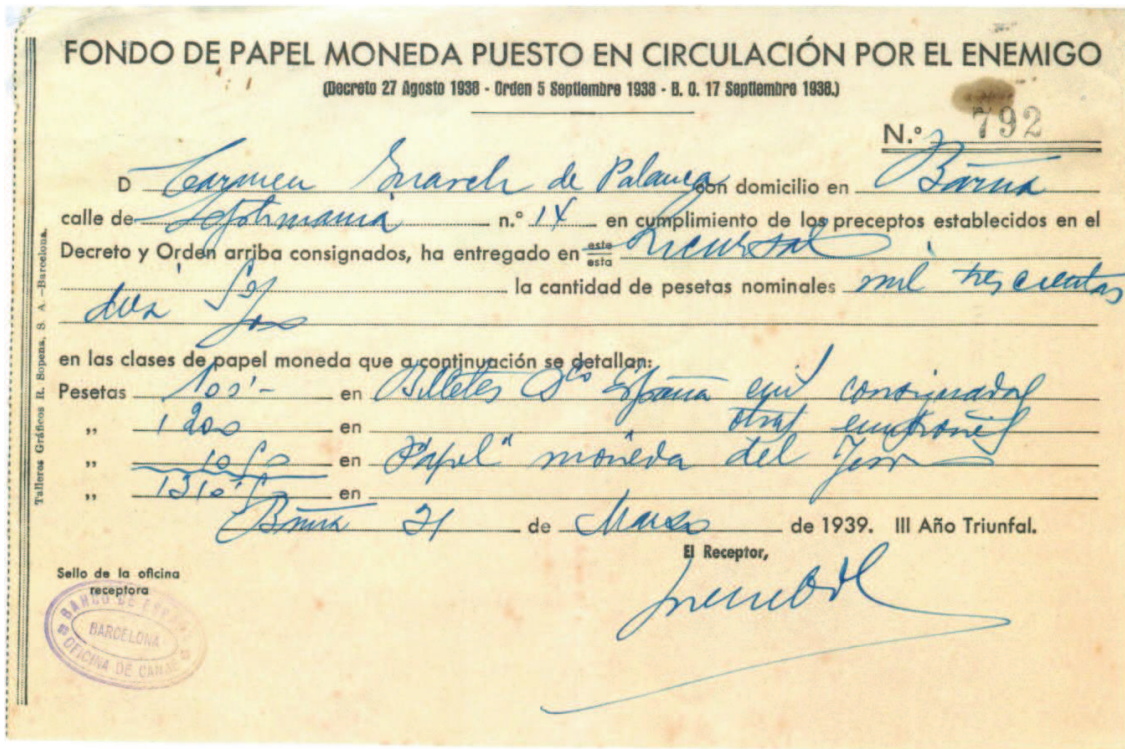 FONDO DE PAPEL MONEDA PUESTO EN CIRCULACIÓN POR EL ENEMIGO
(Decreto 27 Agosto 1938 - Orden 5 Septiembre 1938 - B. O. 17 Septiembre 1938.)
N.º 792
D Carmen March de Palanca con domicilio en Barna
calle de n.º 14 en cumplimiento de los preceptos establecidos en el
Decreto y Orden arriba consignados, ha entregado en este esta Sucursal
la cantidad de pesetas nominales mil trescientas
diez
en las clases de papel moneda que a continuación se detallan:
Pesetas 100'- en Billetes Bco España
,, 1200 en otras
,, 10 en "Papel" moneda del
,, 1310 en
Barna 21 de Marzo de 1939. III Año Triunfal.
El Receptor,
Sello de la oficina
receptora
BANCO DE ESPAÑA
BARCELONA
OFICINA DE CANJE
Talleres Gráficos R. Sopena, S. A.-Barcelona.